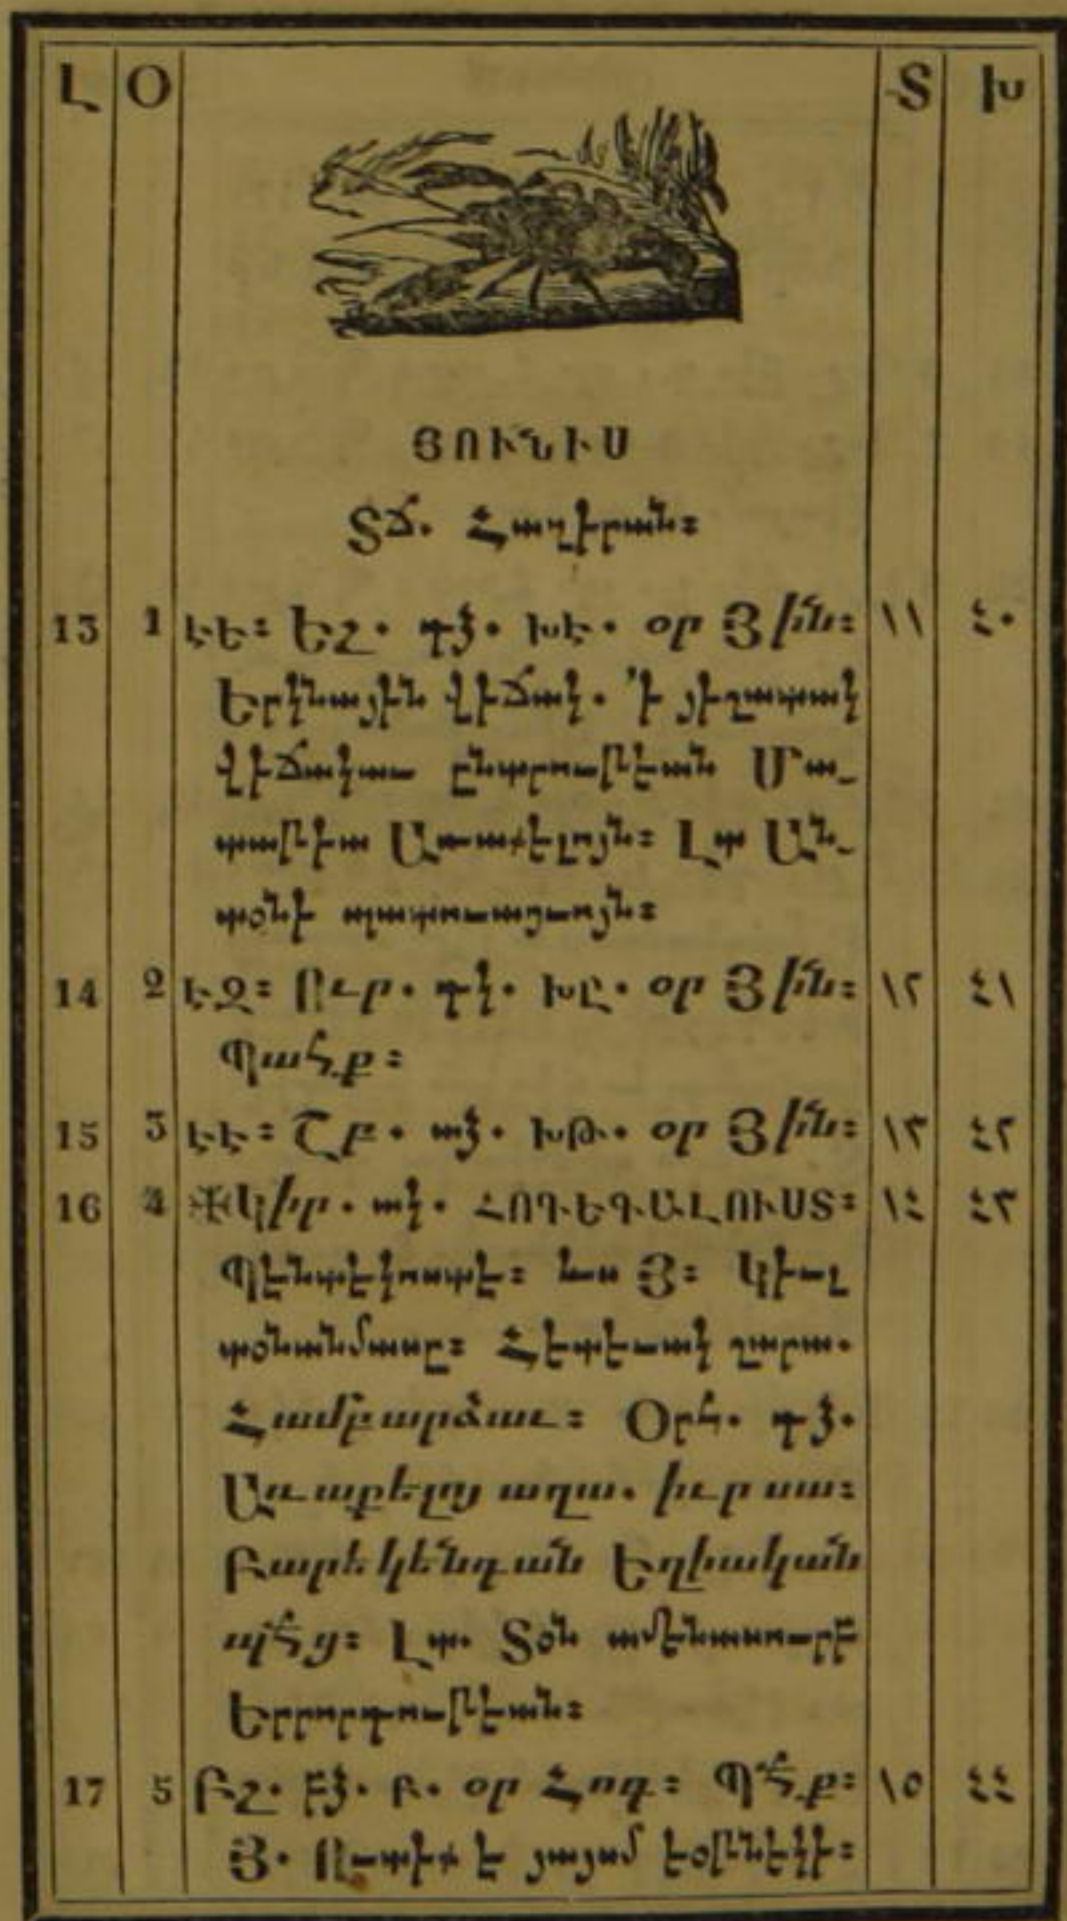 Լ Օ Տ Խ
ՅՈՒՆԻՍ
Տճ. Հազիրան։
13 1 ԷԵ։ Եշ. դձ. ԽԷ. օր Յին։ ١١ ٤٠
Երկնային վիճակ. ՚ի յիշատակ
վիճակաւ ընտրութեան Մա-
տաթիա Առաքելոյն։ Լտ Ան-
տօնի պատուացւոյն։
14 2 ԷԶ։ Ուր. դկ. ԽԸ. օր Յին։ ١٢ ٤١
Պահք։
15 3 ԷԷ։ Շբ. աձ. ԽԹ. օր Յին։ ١٣ ٤٢
16 4 Կիր. ակ. ՀՈԳԵԳԱԼՈՒՍՏ։ ١٤ ٤٣
Պէնտէկոստէ։ Յ։ Կիւլ
տօնանմասը։
Համբարձաւ։ Օրհ. դձ.
Առաքելոյ աղա. իւր սա։
Բարեկենդան Եղիական
պհց։ Լտ. Տօն ամենասուրբ
Երրորդութեան։
17 5 Բշ. բձ. Բ. օր Հոգ։ Պհք։ ١٥ ٤٤
Յ. է յայսմ